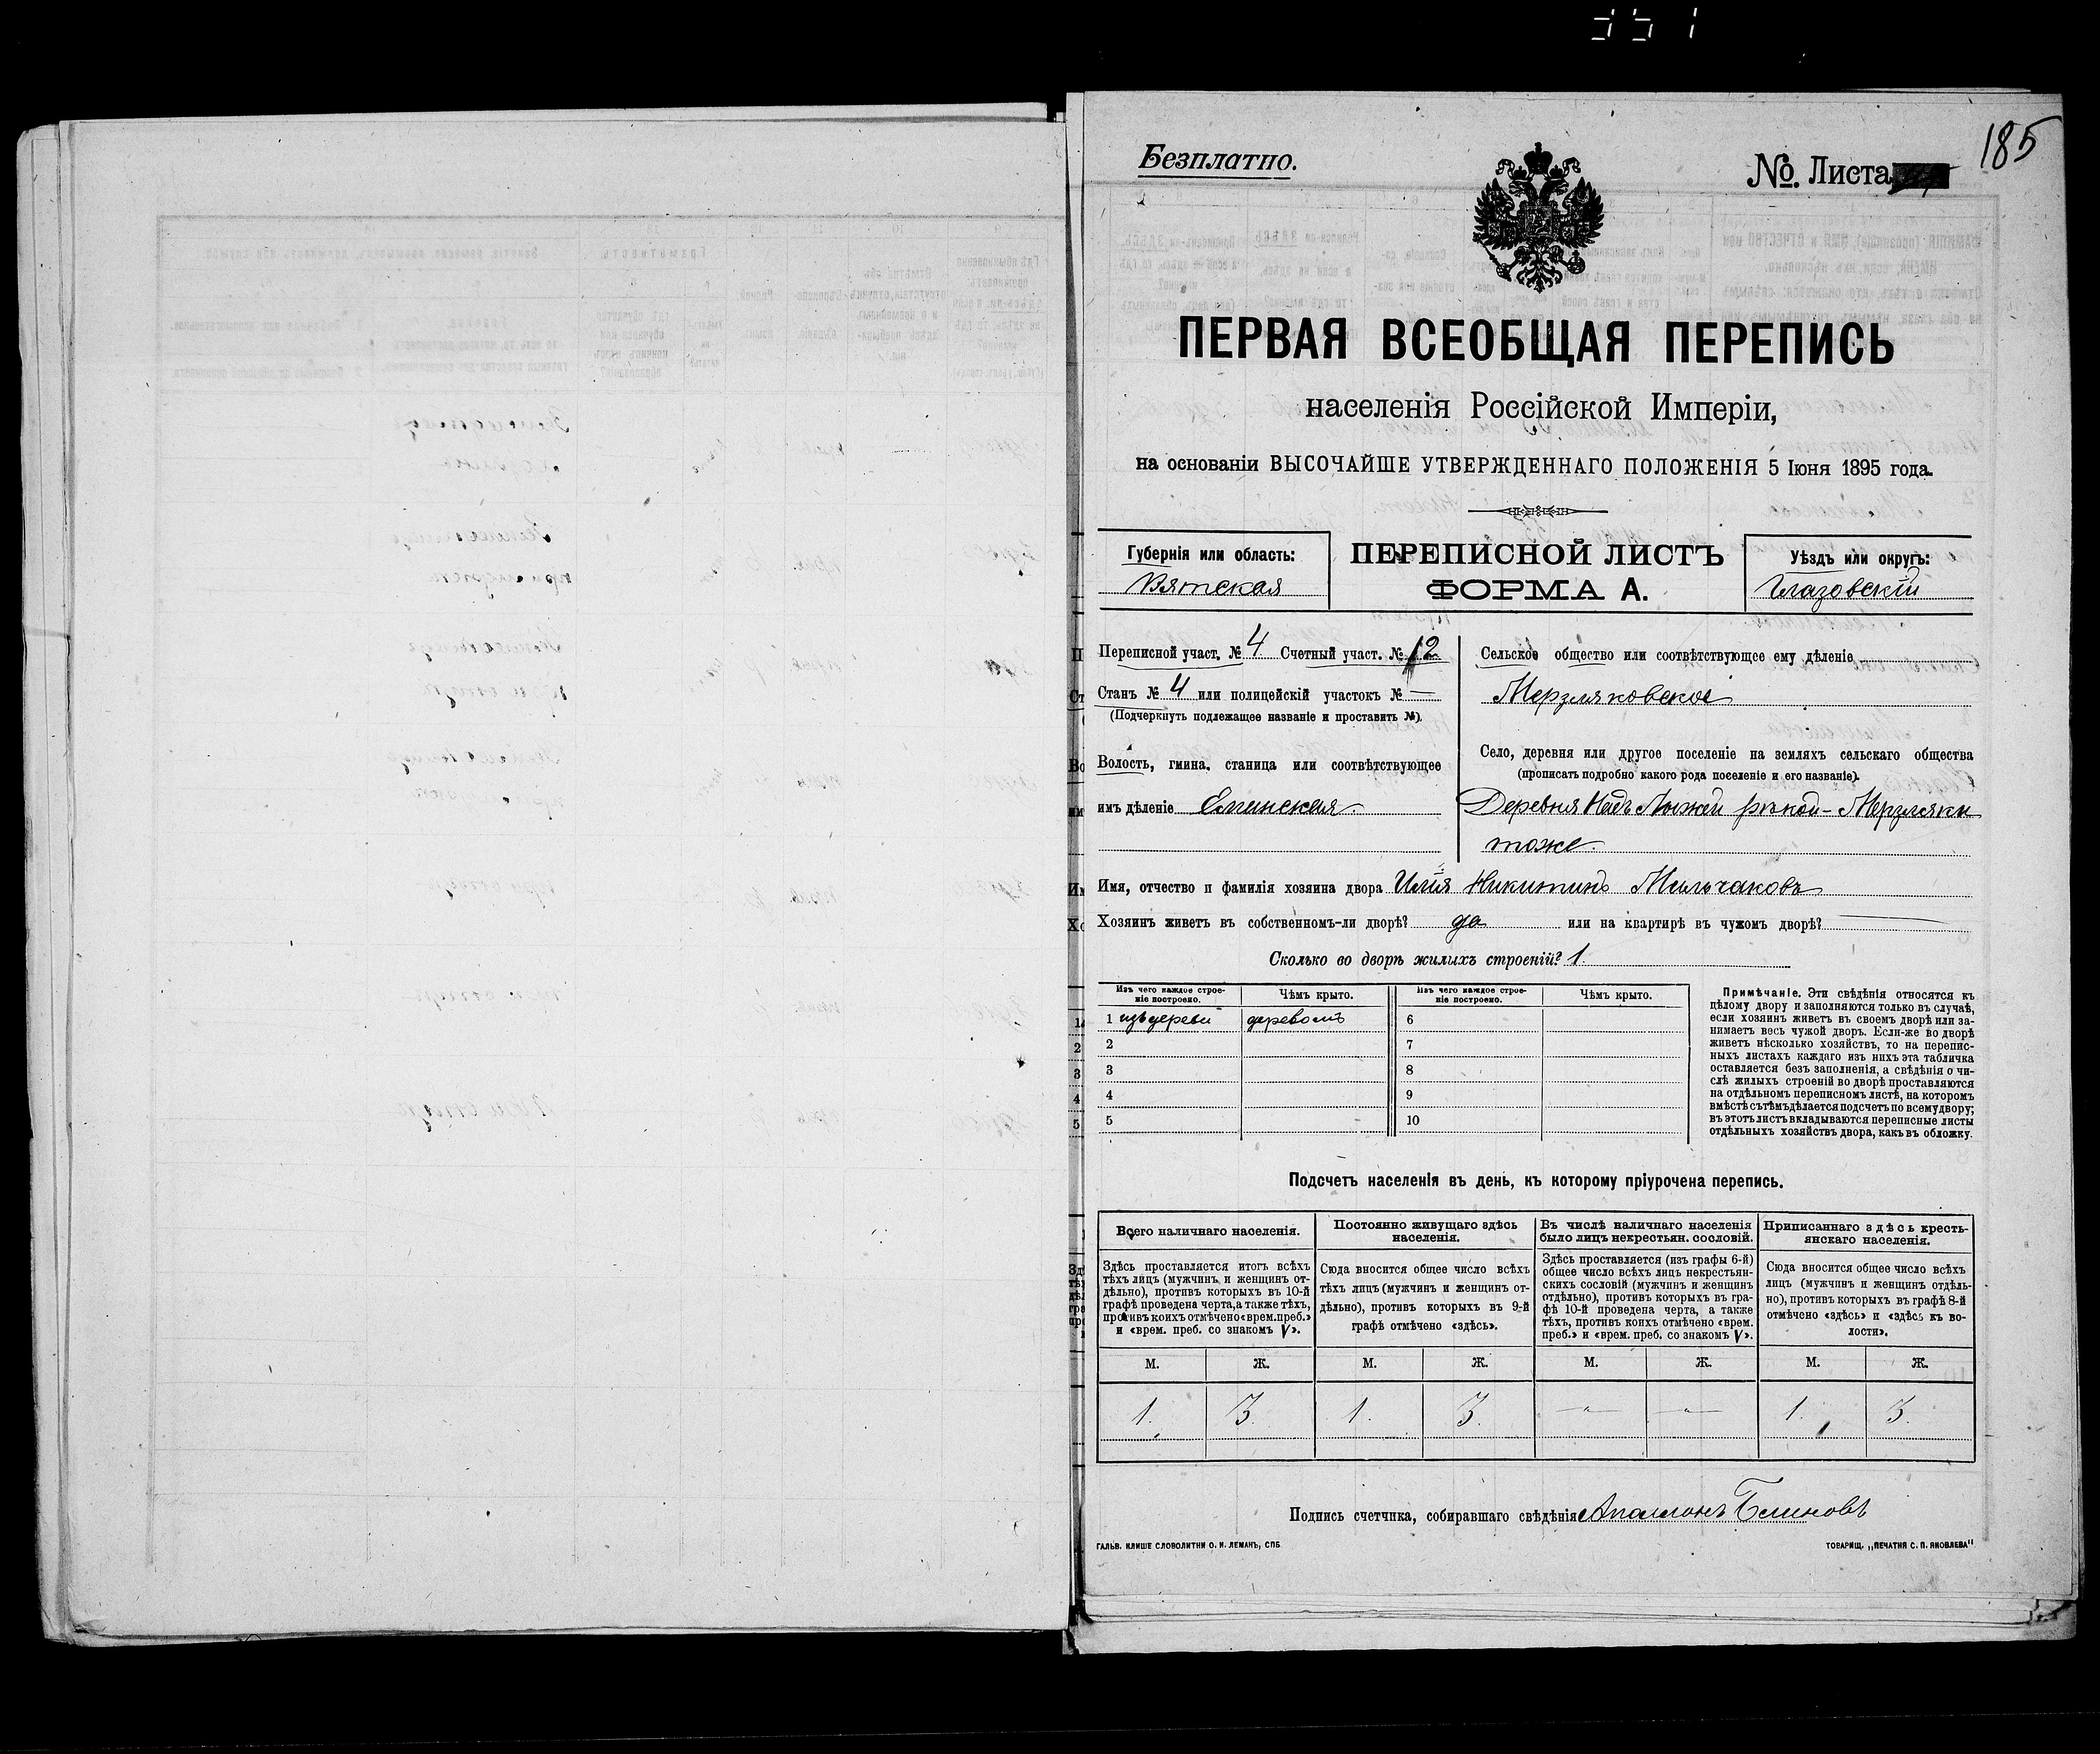 331
185
Безплатно.
№. Листа
ПЕРВАЯ ВСЕОБЩАЯ ПЕРЕПИСЬ
населенія Россійской Имперіи,
на основаніи ВЫСОЧАЙШЕ УТВЕРЖДЕННАГО ПОЛОЖЕНІЯ 5 Іюня 1895 года.
Губернія или область:
Вятская
ПЕРЕПИСНОЙ ЛИСТЪ
ФОРМА А.
Уѣздъ или округъ:
Глазовскій
Переписной участ. № 4 Счетный участ. № 12
Станъ № 4 или полицейскій участокъ № —
(Подчеркнуть подлежащее названіе и проставить №).
Волость, гмина, станица или соотвѣтствующее
имъ дѣленіе Елгинская
Сельское общество или соотвѣтствующее ему дѣленіе
Мерзляковское
Село, деревня или другое поселеніе на земляхъ сельскаго общества
(прописать подробно какого рода поселеніе и его названіе).
Деревня Надъ рѣкой - Мерзляки
тоже
Имя, отчество и фамилія хозяина двора Илія Никитинъ Мильчаковъ
Хозяинъ живетъ въ собственномъ-ли дворѣ? да или на квартирѣ въ чужомъ дворѣ? —
Сколько во дворѣ жилыхъ строеній? 1.
Изъ чего каждое строе-
ніе построено.
Чѣмъ крыто.
Изъ чего каждое строе-
ніе построено.
Чѣмъ крыто.
1 изъ дерева деревомъ 6
2 7
3 8
4 9
5 10
Примѣчаніе. Эти свѣдѣнія относятся къ
цѣлому двору и заполняются только въ случаѣ,
если хозяинъ живетъ въ своемъ дворѣ или за-
нимаетъ весь чужой дворъ. Если-же во дворѣ
живетъ нѣсколько хозяйствъ, то на перепис-
ныхъ листахъ каждаго изъ нихъ эта табличка
оставляется безъ заполненія, а свѣдѣнія о чи-
слѣ жилыхъ строеній во дворѣ проставляются
на отдѣльномъ переписномъ листѣ, на которомъ
вмѣстѣ съ тѣмъ дѣлается подсчетъ по всему двору;
въ этотъ листъ вкладываются переписные листы
отдѣльныхъ хозяйствъ двора, какъ въ обложку.
Подсчетъ населенія въ день, къ которому пріурочена перепись.
Всего наличнаго населенія.
Здѣсь проставляется итогъ всѣхъ
тѣхъ лицъ (мужчинъ и женщинъ от-
дѣльно), противъ которыхъ въ 10-й
графѣ проведена черта, а также тѣхъ,
противъ коихъ отмѣчено «врем. преб.»
и «врем. преб. со знакомъ V».
Постоянно живущаго здѣсь
населенія.
Сюда вносится общее число всѣхъ
тѣхъ лицъ (мужчинъ и женщинъ от-
дѣльно), противъ которыхъ въ 9-й
графѣ отмѣчено «здѣсь».
Въ числѣ наличнаго населенія
было лицъ некрестьян. сословій.
Здѣсь проставляется (изъ графы 6-й)
общее число всѣхъ лицъ некрестьян-
скихъ сословій (мужчинъ и женщинъ
отдѣльно), противъ которыхъ въ гра-
фѣ 10-й проведена черта, а также
тѣхъ, противъ коихъ отмѣчено «врем.
преб.» и «врем. преб. со знакомъ V».
Приписаннаго здѣсь кресть-
янскаго населенія.
Сюда вносится общее число всѣхъ
лицъ (мужчинъ и женщинъ отдѣль-
но), противъ которыхъ въ графѣ 8-й
отмѣчено «здѣсь» и «здѣсь къ во-
лости».
М. Ж. М. Ж. М. Ж. М. Ж.
1. 3. 1. 3. — — 1. 3.
Подпись счетчика, собиравшаго свѣдѣнія Аполлонъ Блиновъ
ГАЛЬВ. КЛИШЕ СЛОВОЛИТНИ О. И. ЛЕМАНЪ, СПБ
ТОВАРИЩ. „ПЕЧАТНЯ С. П. ЯКОВЛЕВА"